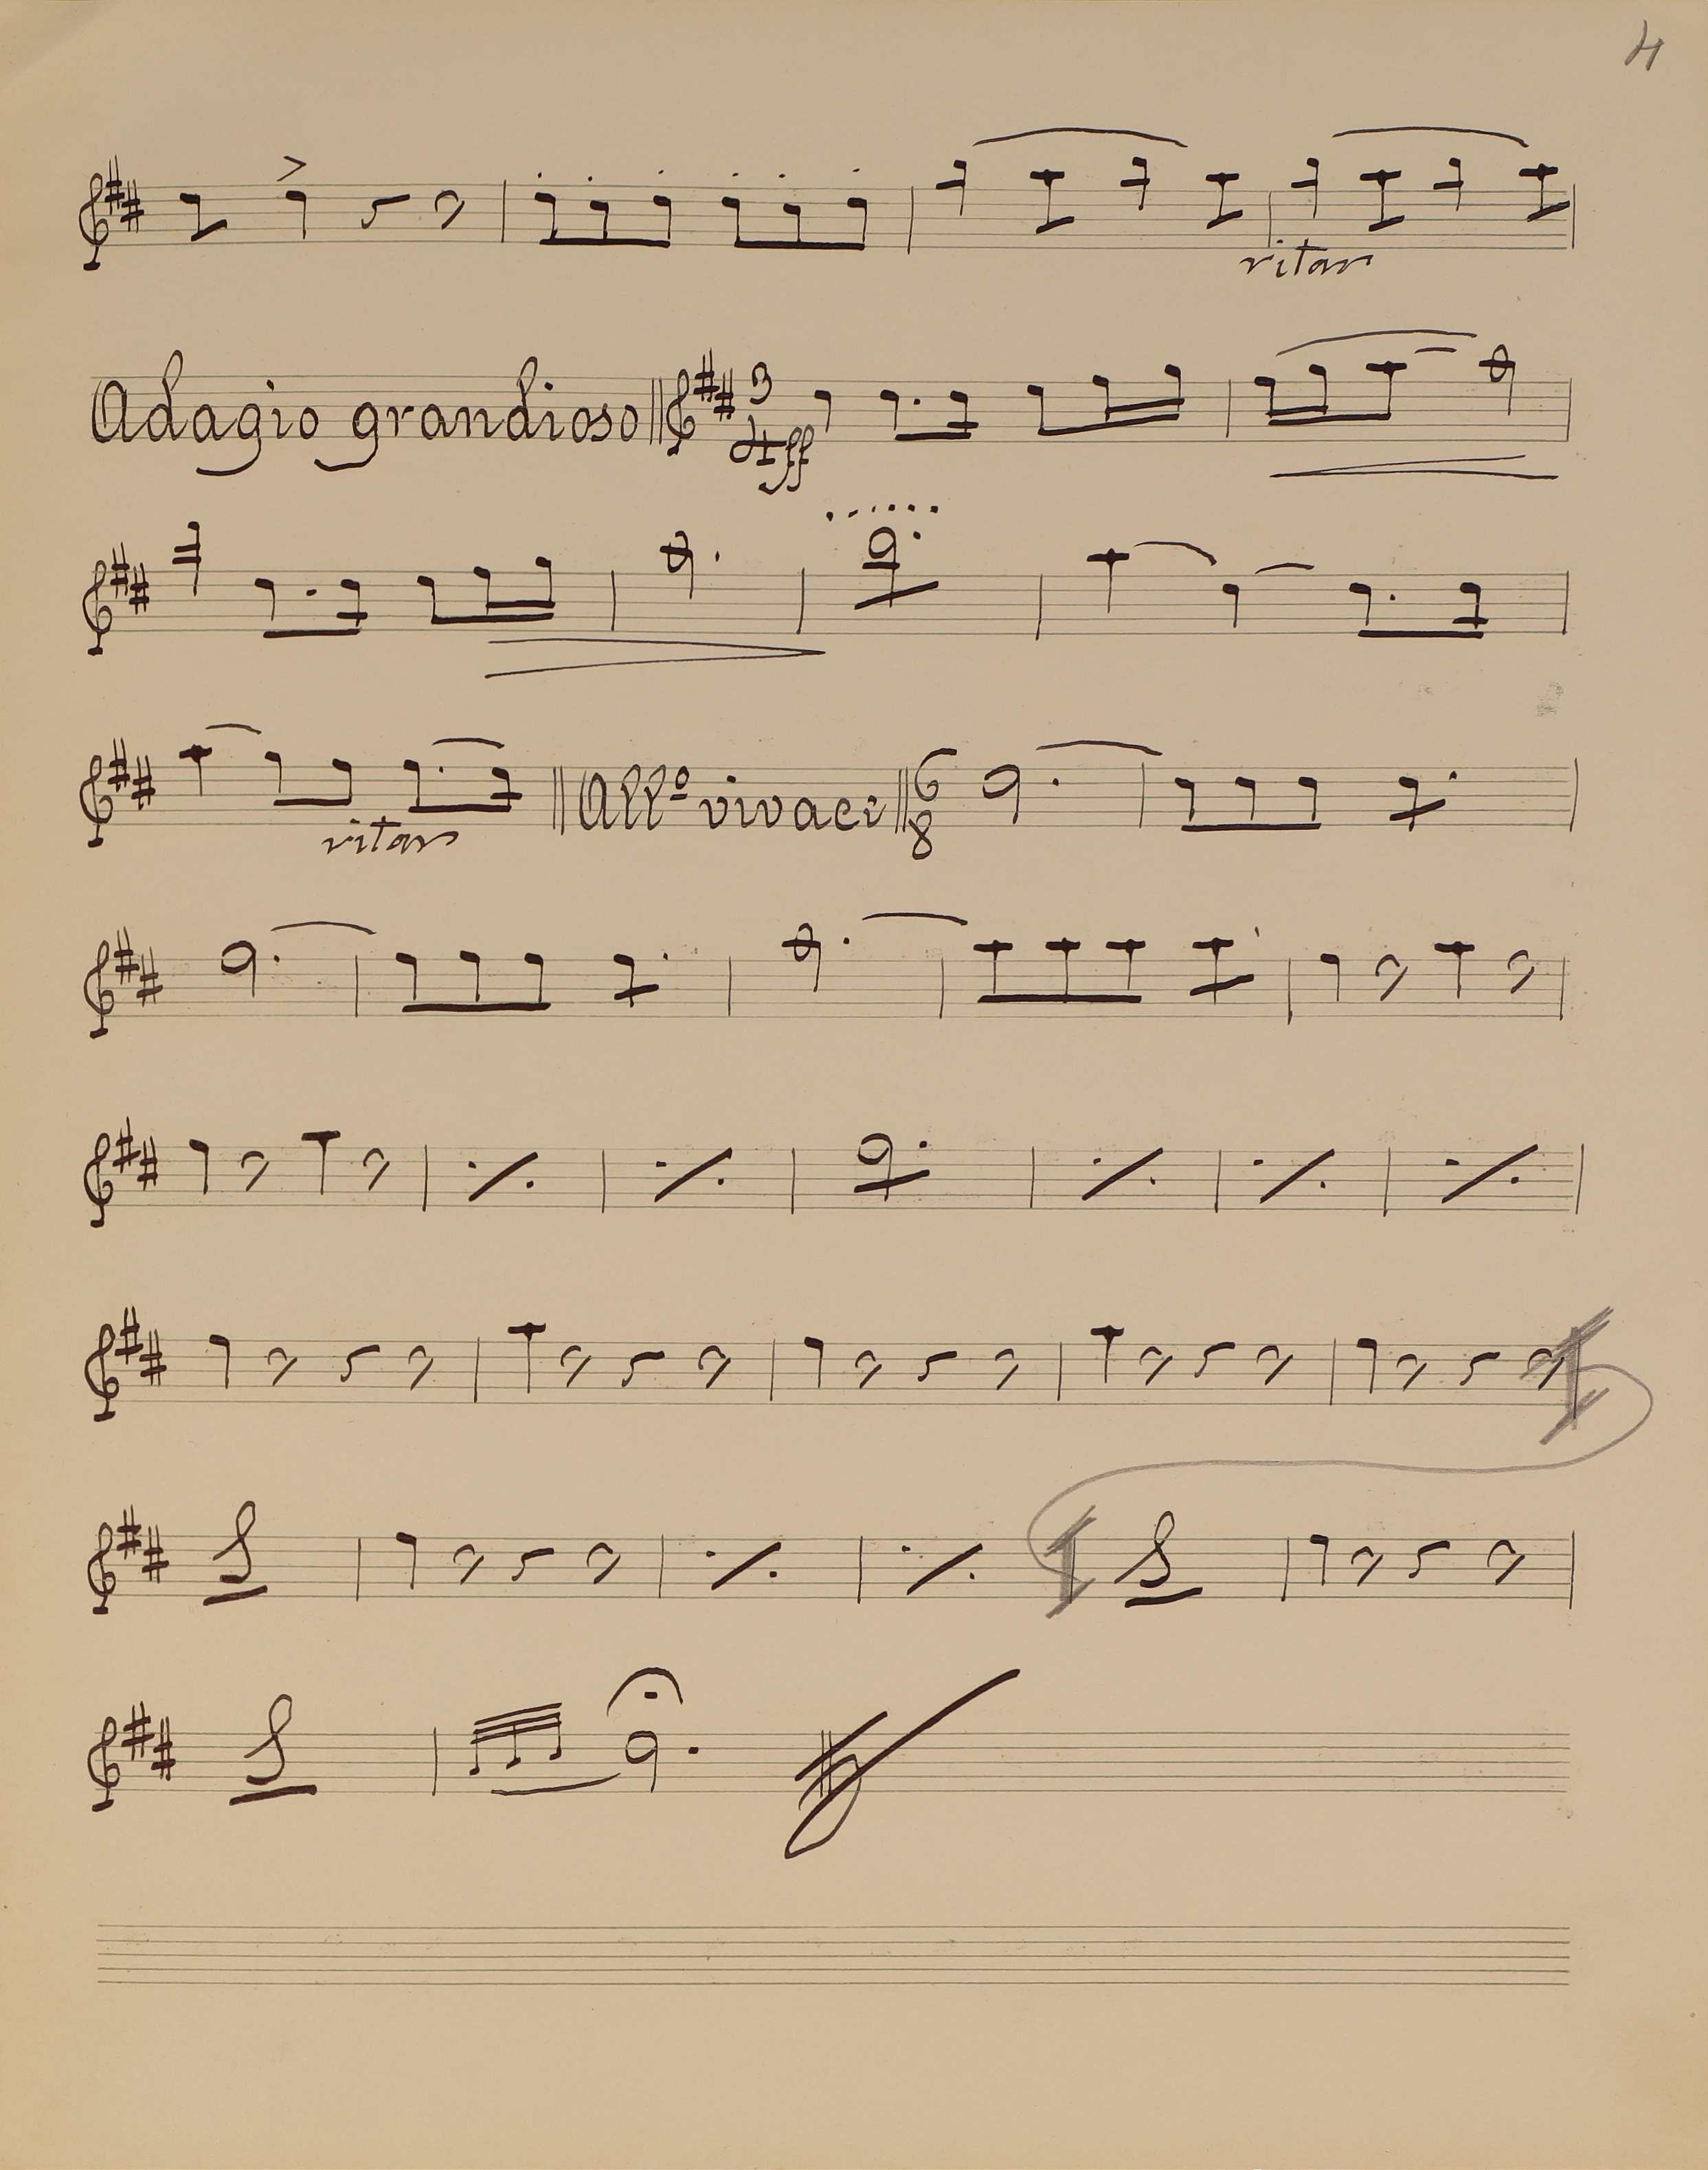 4
ritar
Adagio grandioso 3 4 ff
ritar All.º vivace 6 8